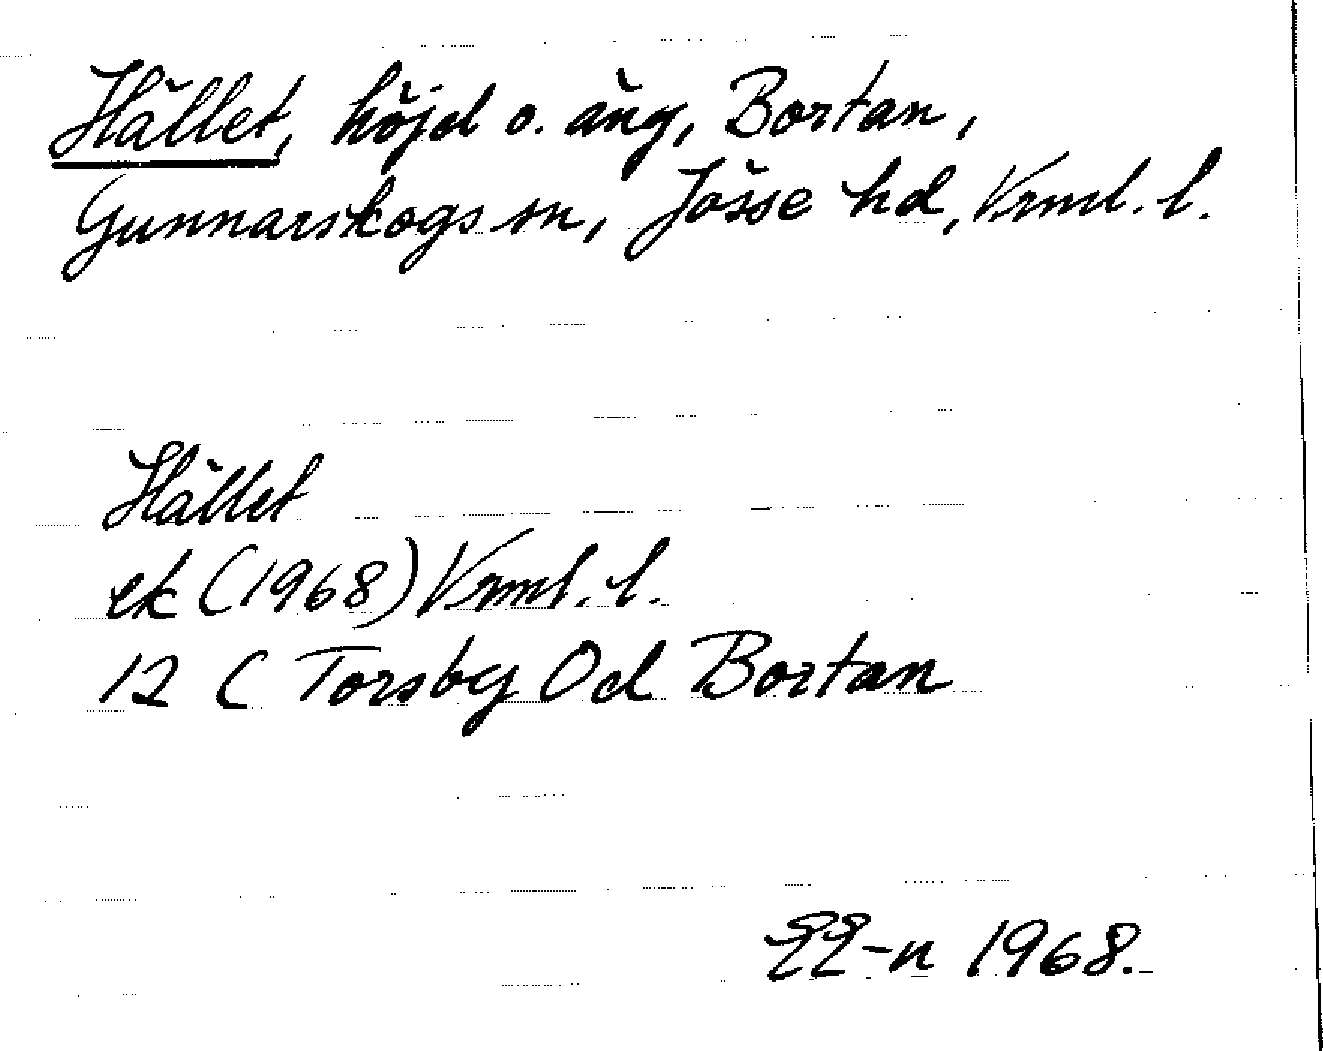 Hället, höjd o. äng, Bortan,
Gunnarskogs sn, Jösse hd, Vrml. l.
Hället
ek (1968) Vrml. l.
12 C Torsby Od Bortan
EE-n 1968.